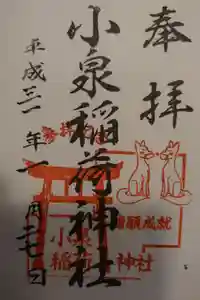 奉拝
小泉稲荷神社
平成三一年一月二七日
願成就
小泉
稲荷
神社